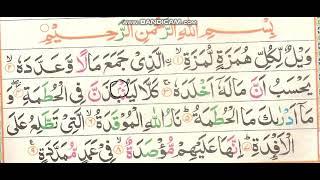 RECORDED WITH
BANDICAM.COM
بِسْمِ اللّٰهِ الرَّحْمٰنِ الرَّحِيْمِ
وَيْلٌ لِّكُلِّ هُمَزَةٍ لُّمَزَةِ ۙ‏﴿۱﴾ اۨلَّذِىْ جَمَعَ مَالًا وَّعَدَّدَهٗ ۙ‏﴿۲﴾
يَحْسَبُ اَنَّ مَالَهٗۤ اَخْلَدَهٗ ۚ‏﴿۳﴾ كَلَّا لَيُنْۢبَذَنَّ فِى الْحُطَمَةِ ۖ‏﴿۴﴾ وَ
مَاۤ اَدْرٰٮكَ مَا الْحُطَمَةُ ؕ‏﴿۵﴾ نَارُ اللّٰهِ الْمُوْقَدَةُ ۙ‏﴿۶﴾ الَّتِىْ تَطَّلِعُ عَلَى
الْاَفْـِٕدَةِ ؕ‏﴿۷﴾ اِنَّهَا عَلَيْهِمْ مُّؤْصَدَةٌ ۙ‏﴿۸﴾ فِىْ عَمَدٍ مُّمَدَّدَةٍ ‏﴿۹﴾